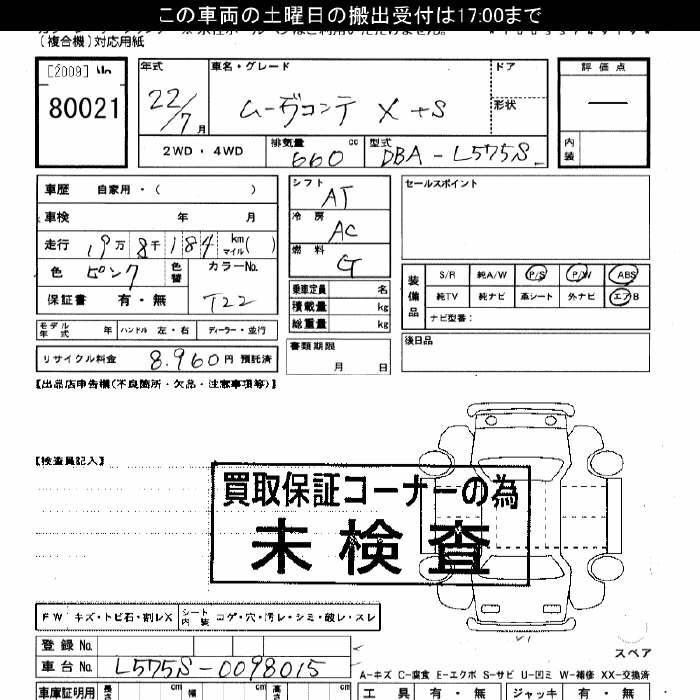 この車両の土曜日の搬出受付は17:00まで
(複合機)対応用紙
[2009]
80021
年式 車名・グレード ドア 評価点
22/7月 ムーヴコンテ X+S 形状 —
内装
2WD・4WD 排気量 660 cc 型式 DBA-L575S
車歴 自家用・( ) シフト AT セールスポイント
車検 年 月 冷房 AC
走行 19万8千184 km マイル( ) 燃料 G
色 ピンク 色替 カラーNo. T22
保証書 有・無
装備品 S/R 純A/W P/S P/W ABS
純TV 純ナビ 革シート 外ナビ エアB
ナビ型番:
乗車定員 名
積載量 kg
総重量 kg
モデル年式 年 ハンドル 左・右 ディーラー・並行
書類期限 月 日
後日品
リサイクル料金 8,960円 預託済
【出品店申告欄(不良箇所・欠品・注意事項等)】
【検査員記入】
買取保証コーナーの為
未検査
FW キズ・トビ石・割レX シート内装 コゲ・穴・汚レ・シミ・破レ・スレ
登録No.
車台No. L575S-0098015
スペア
A-キズ C-腐食 E-エクボ S-サビ U-凹ミ W-補修 XX-交換済
車庫証明用 長さ cm 幅 cm 高さ cm
工具 有・無 ジャッキ 有・無